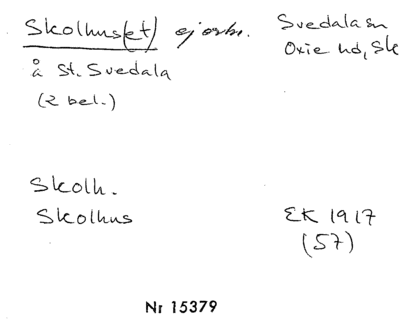 Skolhus(et) ej orbn.
Svedala sn
Oxie hd, Sk
å St. Svedala
(2 bel.)
Skolh.
Skolhus
EK 1917
(57)
Nr 15379